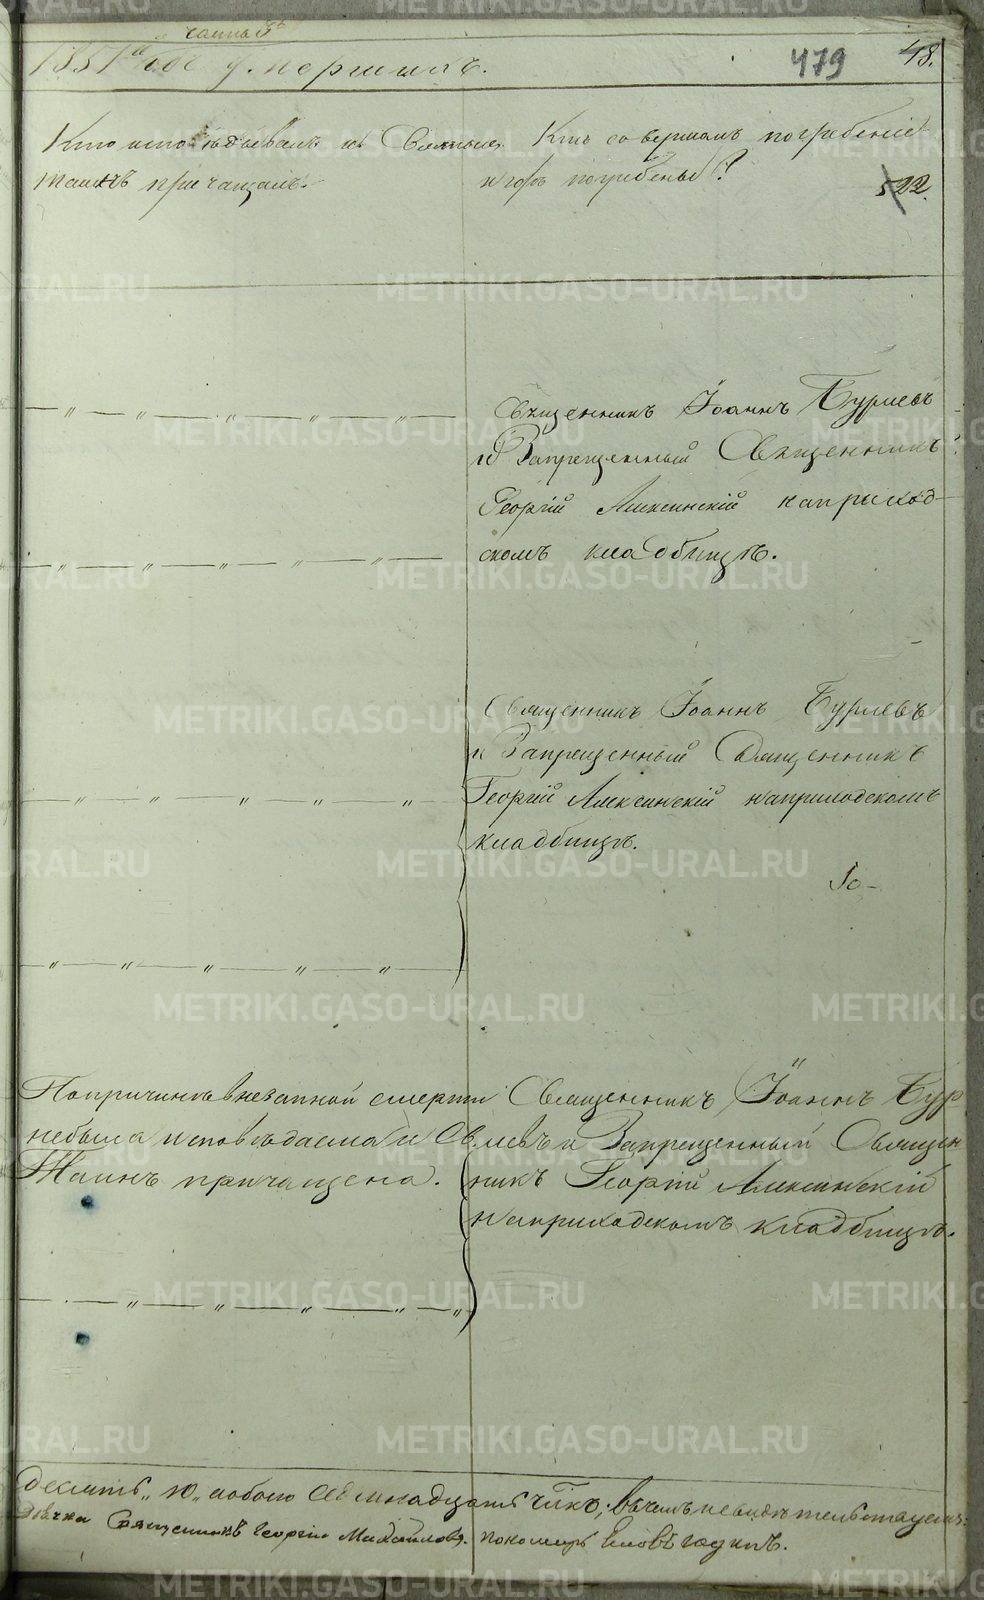 часть 3я
1851 го годъ умершихъ.
479
48.
Кто исповѣдывалъ и Святыхъ
таинъ причащалъ.
Кто совершалъ погребеніе
и гдѣ погребены?
522.
Священникъ Іоаннъ Бурлевъ
и Запрещенный Священникъ
Георгій Алексинскій на приход-
скомъ кладбищѣ.
Священникъ Іоаннъ Бурлевъ
и Запрещенный Священникъ
Георгій Алексинскій на приходскомъ
кладбищѣ.
По причинѣ внезапной смерти
небыла исповѣдаема и Св.
Таинъ причащена.
Священникъ Іоаннъ Бур
левъ и Запрещенный Священ
никъ Георгій Алексинскій
на приходскомъ кладбищѣ.
десять „10„ обоего Семнадцать въ чемъ и свидѣтельствуемъ:
Священникъ Георгій Михайловъ. пономарь
METRIKI.GASO-URAL.RU